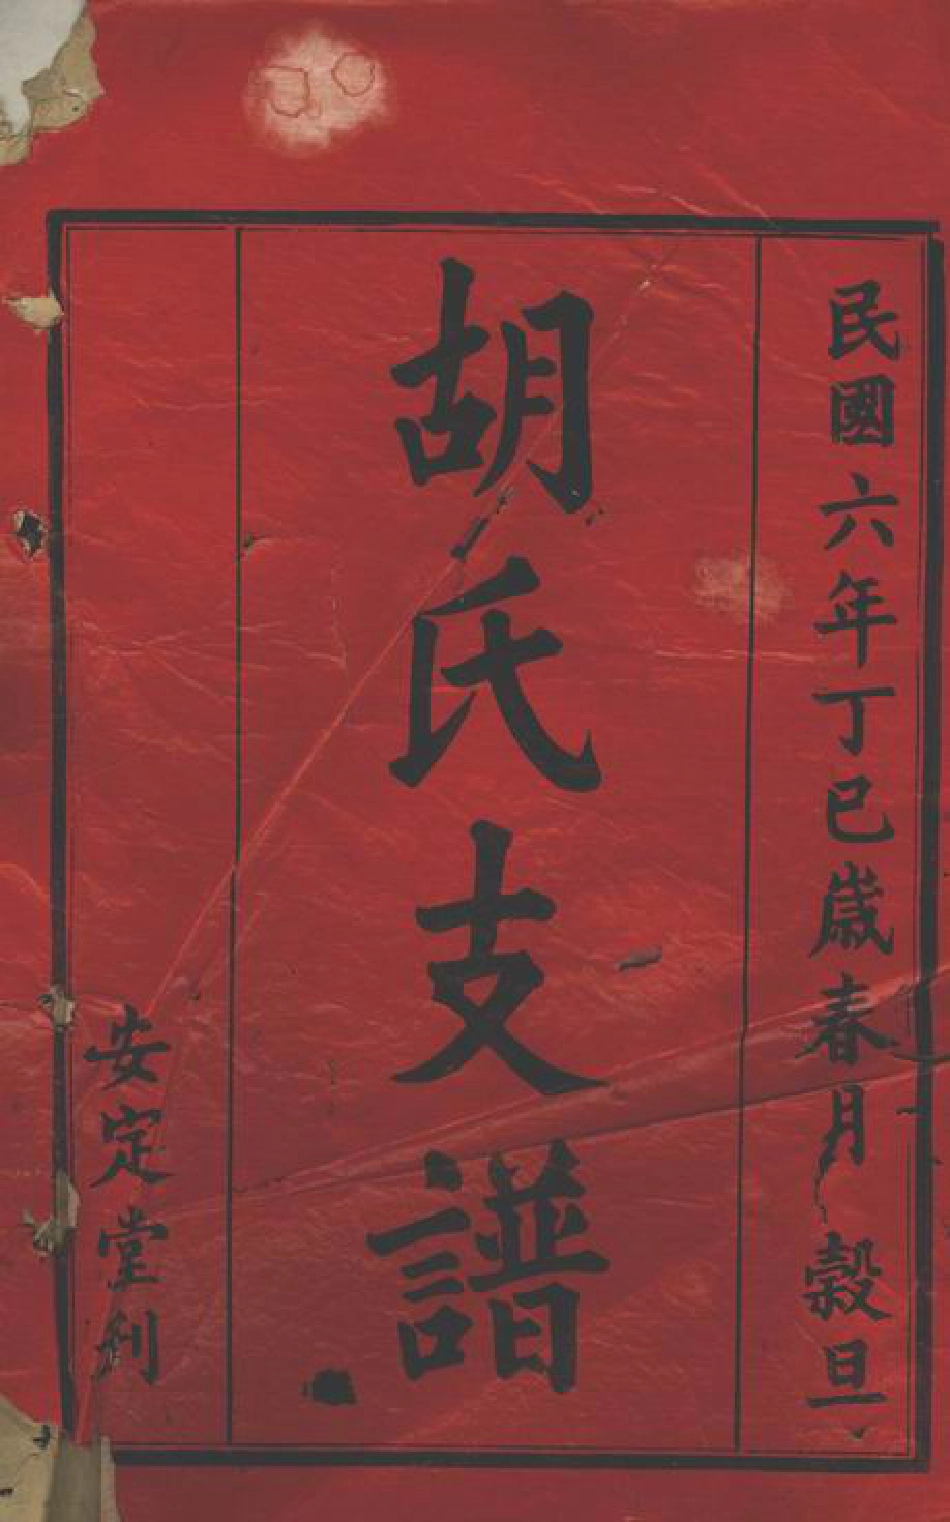 民國六年丁巳歲春月 穀旦
胡氏支譜
安定堂刋